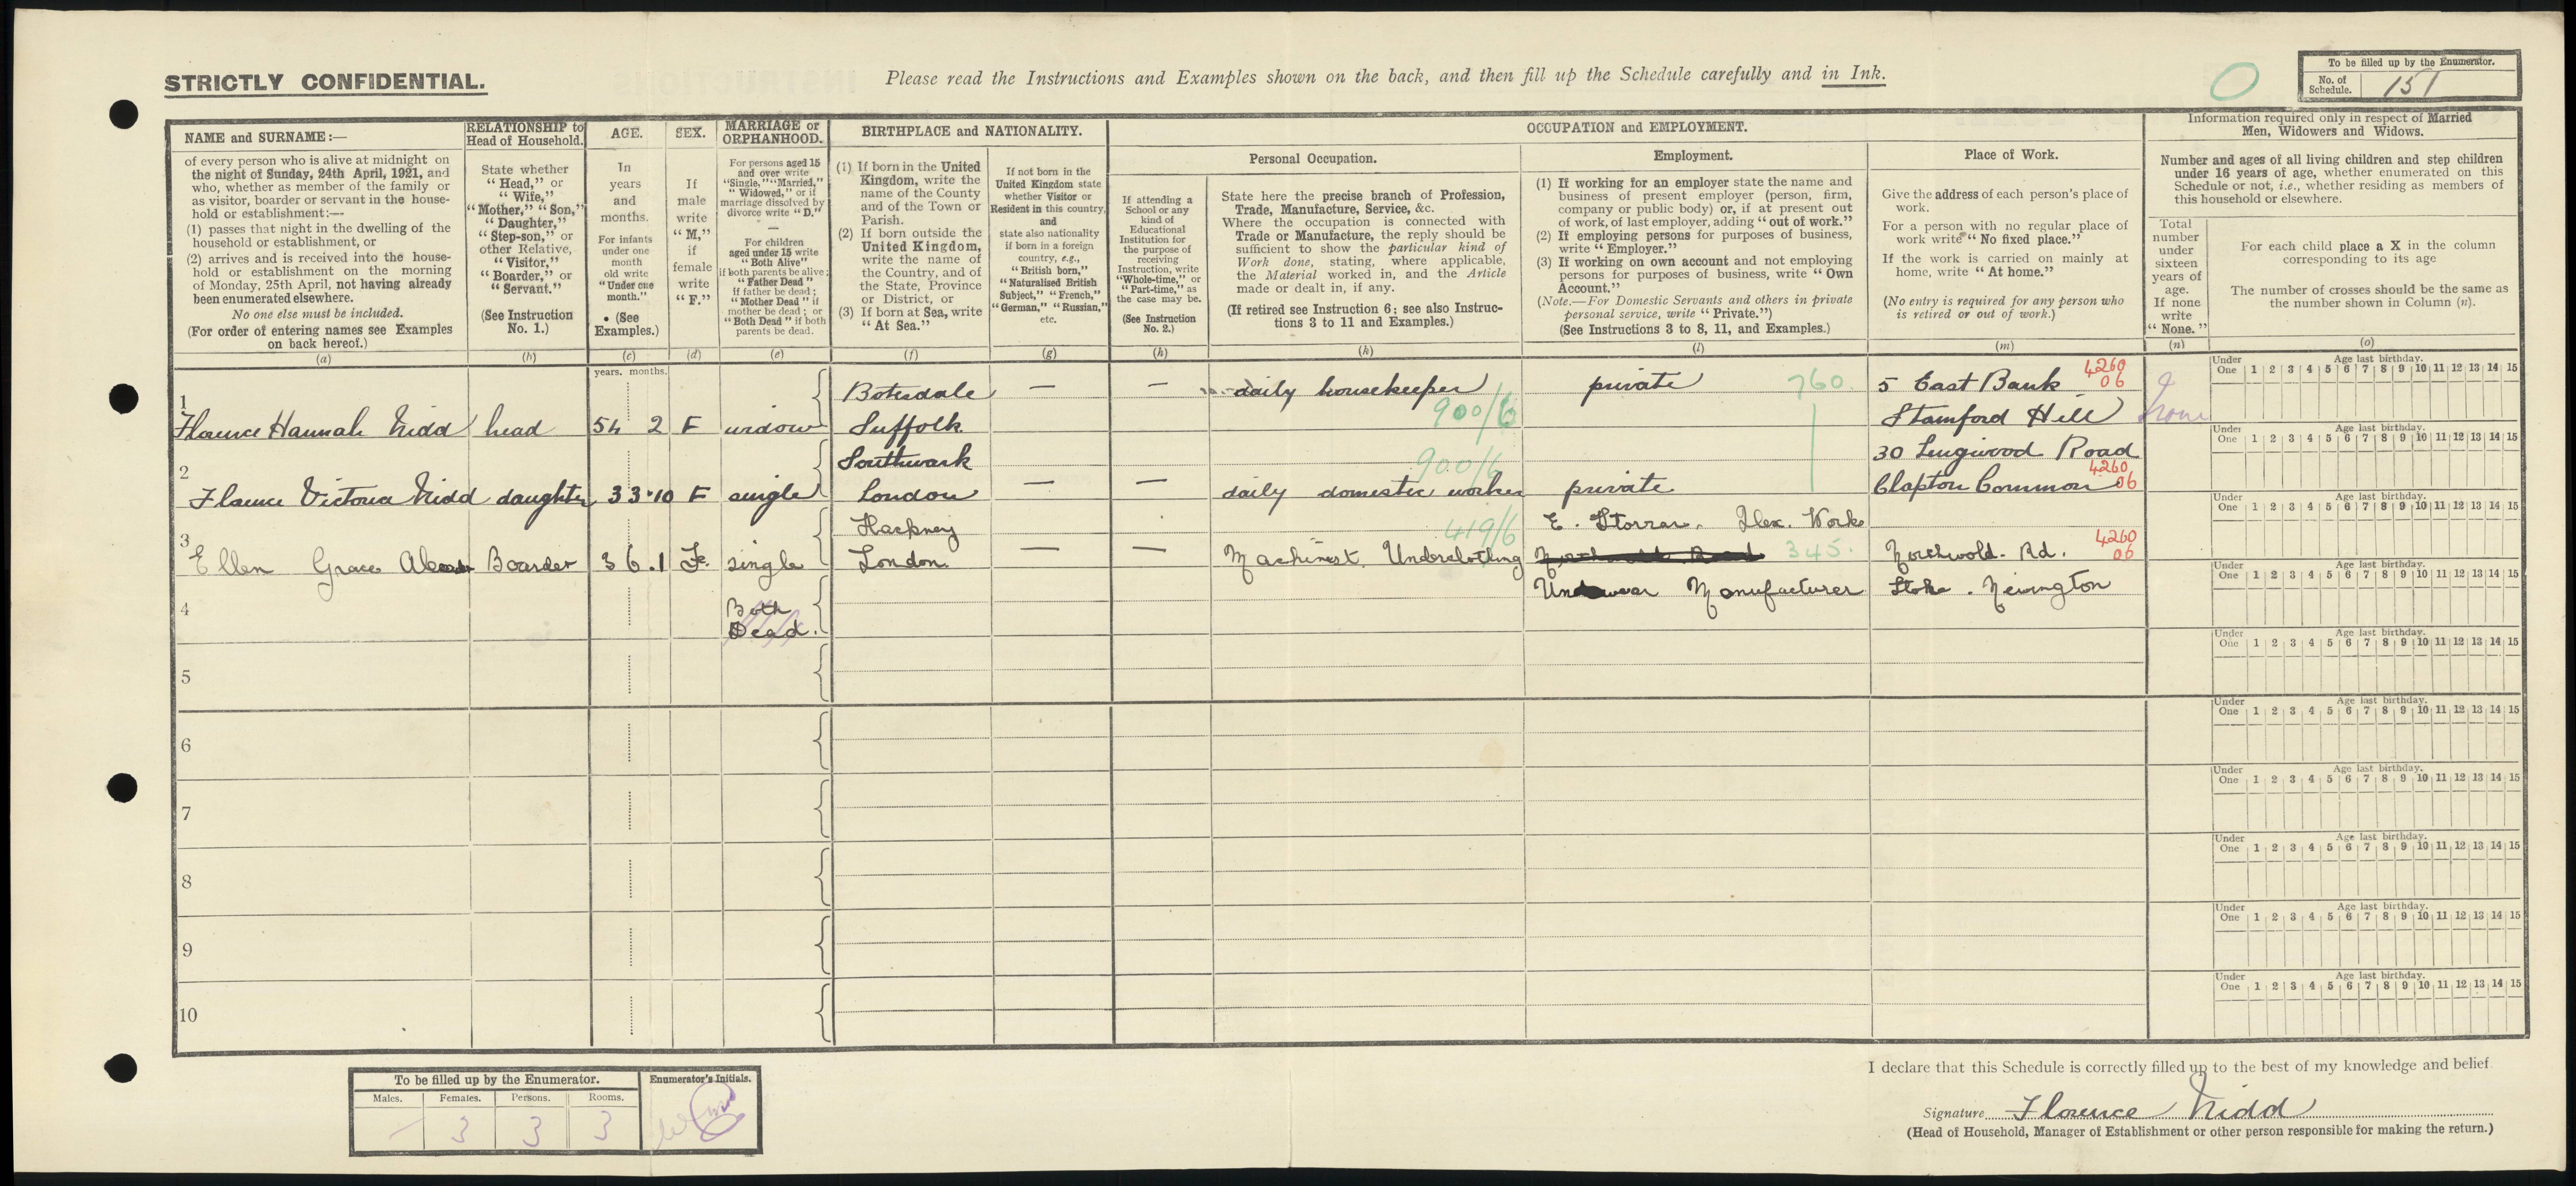 STRICTLY CONFIDENTIAL.
Please read the Instructions and Examples shown on the back, and then fill up the Schedule carefully and in Ink.
To be filled up by the Enumerator.
No. of Schedule. 151
NAME and SURNAME:—
of every person who is alive at midnight on
the night of Sunday, 24th April, 1921, and
who, whether as member of the family or
as visitor, boarder or servant in the house-
hold or establishment:—
(1) passes that night in the dwelling of the
household or establishment, or
(2) arrives and is received into the house-
hold or establishment on the morning
of Monday, 25th April, not having already
been enumerated elsewhere.
No one else must be included.
(For order of entering names see Examples
on back hereof.)
(a)
RELATIONSHIP to
Head of Household.
State whether
“Head,” or
“Wife,”
“Mother,” “Son,”
“Daughter,”
“Step-son,” or
other Relative,
“Visitor,”
“Boarder,” or
“Servant.”
(See Instruction
No. 1.)
(b)
AGE.
In
years
and
months.
For infants
under one
month
old write
“Under one
month.”
(See
Examples.)
(c)
SEX.
If
male
write
“M,”
if
female
write
“F.”
(d)
MARRIAGE or
ORPHANHOOD.
For persons aged 15
and over write
“Single,” “Married,”
“Widowed,” or if
marriage dissolved by
divorce write “D.”
—
For children
aged under 15 write
“Both Alive”
if both parents be alive;
“Father Dead”
if father be dead;
“Mother Dead” if
mother be dead; or
“Both Dead” if both
parents be dead.
(e)
BIRTHPLACE and NATIONALITY.
(1) If born in the United
Kingdom, write the
name of the County
and of the Town or
Parish.
(2) If born outside the
United Kingdom,
write the name of
the Country, and of
the State, Province
or District, or
(3) If born at Sea, write
“At Sea.”
(f)
If not born in the
United Kingdom state
whether Visitor or
Resident in this country,
and
state also nationality
if born in a foreign
country, e.g.,
“British born,”
“Naturalised British
Subject,” “French,”
“German,” “Russian,”
etc.
(g)
OCCUPATION and EMPLOYMENT.
If attending a
School or any
kind of
Educational
Institution for
the purpose of
receiving
Instruction, write
“Whole-time,” or
“Part-time,” as
the case may be.
(See Instruction
No. 2.)
(h)
Personal Occupation.
State here the precise branch of Profession,
Trade, Manufacture, Service, &c.
Where the occupation is connected with
Trade or Manufacture, the reply should be
sufficient to show the particular kind of
Work done, stating, where applicable,
the Material worked in, and the Article
made or dealt in, if any.
(If retired see Instruction 6; see also Instruc-
tions 3 to 11 and Examples.)
(k)
Employment.
(1) If working for an employer state the name and
business of present employer (person, firm,
company or public body) or, if at present out
of work, of last employer, adding “out of work.”
(2) If employing persons for purposes of business,
write “Employer.”
(3) If working on own account and not employing
persons for purposes of business, write “Own
Account.”
(Note.—For Domestic Servants and others in private
personal service, write “Private.”)
(See Instructions 3 to 8, 11, and Examples.)
(l)
Place of Work.
Give the address of each person's place of
work.
For a person with no regular place of
work write “No fixed place.”
If the work is carried on mainly at
home, write “At home.”
(No entry is required for any person who
is retired or out of work.)
(m)
Information required only in respect of Married
Men, Widowers and Widows.
Number and ages of all living children and step children
under 16 years of age, whether enumerated on this
Schedule or not, i.e., whether residing as members of
this household or elsewhere.
Total
number
under
sixteen
years of
age.
If none
write
“None.”
(n)
For each child place a X in the column
corresponding to its age
The number of crosses should be the same as
the number shown in Column (n).
(o)
years. months.
1 Florence Hannah Nidd head 54 2 F widow Botesdale Suffolk — — daily housekeeper 900/6 private 760 5 East Bank Stamford Hill 4260 06 none
2 Florence Victoria Nidd daughter 33 10 F single Southwark London — — daily domestic worker 900/6 private 30 Lingwood Road Clapton Common 4260 06
3 Ellen Grace Boarder 36.1 Fe. single Hackney London — — Machinest Underclothing 419/6 E. Storrar. Ilex. Works 345. Underwear Manufacturer Northwold. Rd. Stoke. Newington 4260 06
4 Both Dead.
5
6
7
8
9
10
Under One 1 2 3 4 5 6 7 8 9 10 11 12 13 14 15
Age last birthday.
Under One 1 2 3 4 5 6 7 8 9 10 11 12 13 14 15
Age last birthday.
Under One 1 2 3 4 5 6 7 8 9 10 11 12 13 14 15
Age last birthday.
Under One 1 2 3 4 5 6 7 8 9 10 11 12 13 14 15
Age last birthday.
Under One 1 2 3 4 5 6 7 8 9 10 11 12 13 14 15
Age last birthday.
Under One 1 2 3 4 5 6 7 8 9 10 11 12 13 14 15
Age last birthday.
Under One 1 2 3 4 5 6 7 8 9 10 11 12 13 14 15
Age last birthday.
Under One 1 2 3 4 5 6 7 8 9 10 11 12 13 14 15
Age last birthday.
Under One 1 2 3 4 5 6 7 8 9 10 11 12 13 14 15
Age last birthday.
Under One 1 2 3 4 5 6 7 8 9 10 11 12 13 14 15
Age last birthday.
To be filled up by the Enumerator.
Males. Females. Persons. Rooms.
— 3 3 3
Enumerator's Initials.
I declare that this Schedule is correctly filled up to the best of my knowledge and belief
Signature Florence Nidd
(Head of Household, Manager of Establishment or other person responsible for making the return.)